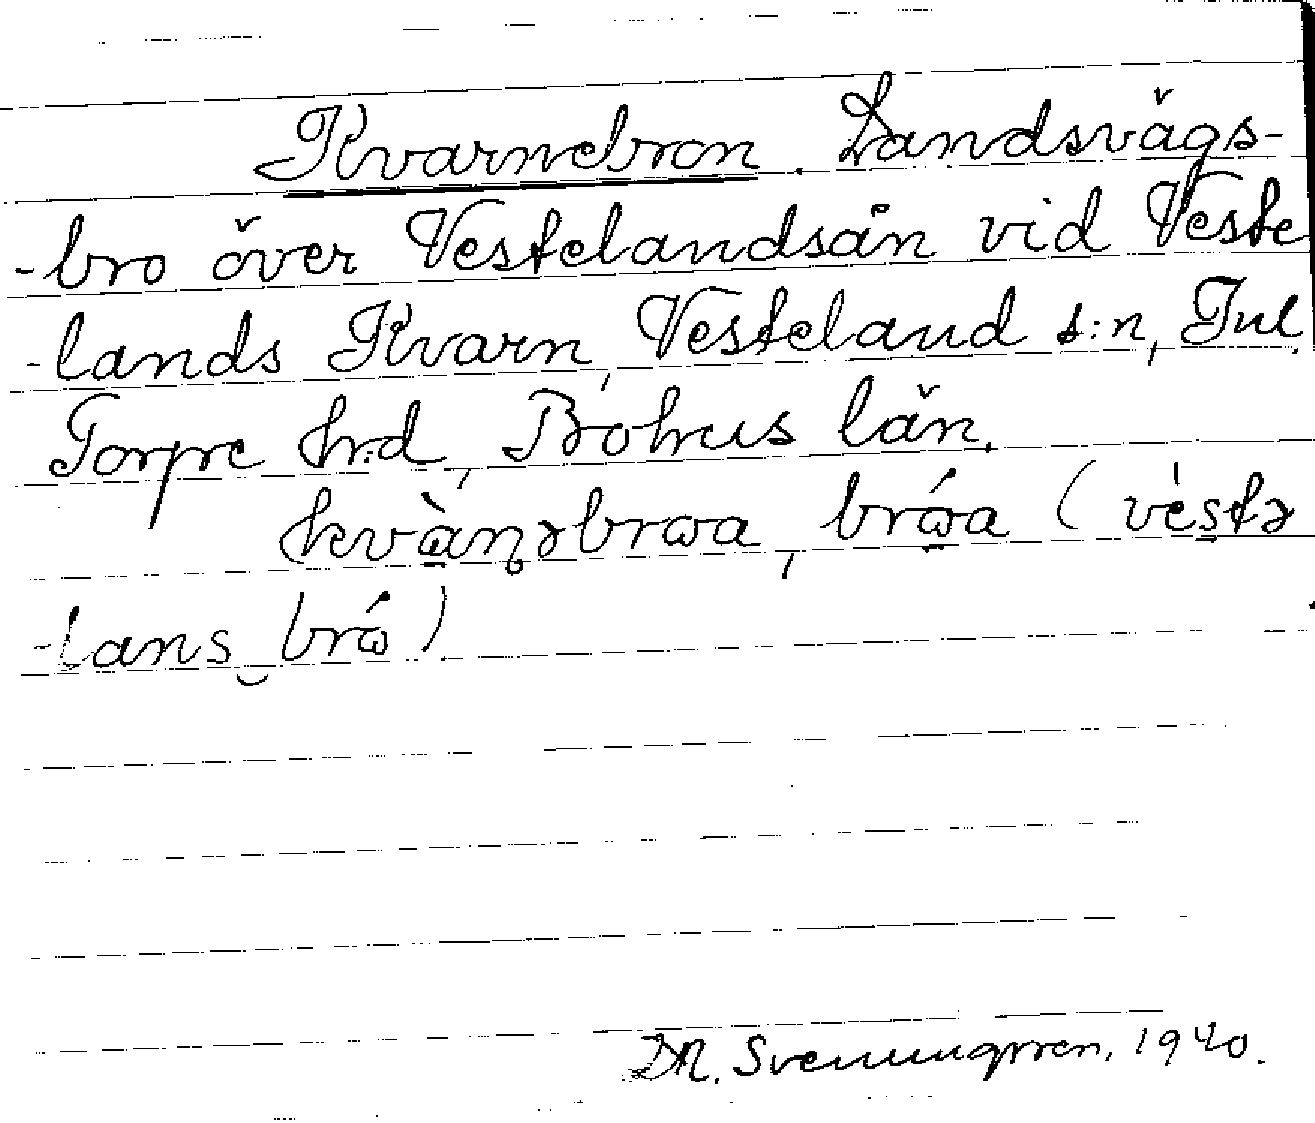 Kvarnebron. Landsvägs-
-bro över Vestelandsån vid Veste
-lands Kvarn, Vesteland s:n, Jul.
Torpe hrd, Bohus län.
kvὼaṇəbrωa, brώa (vèstə
-lans brώ)
Svenungsen, 1940.